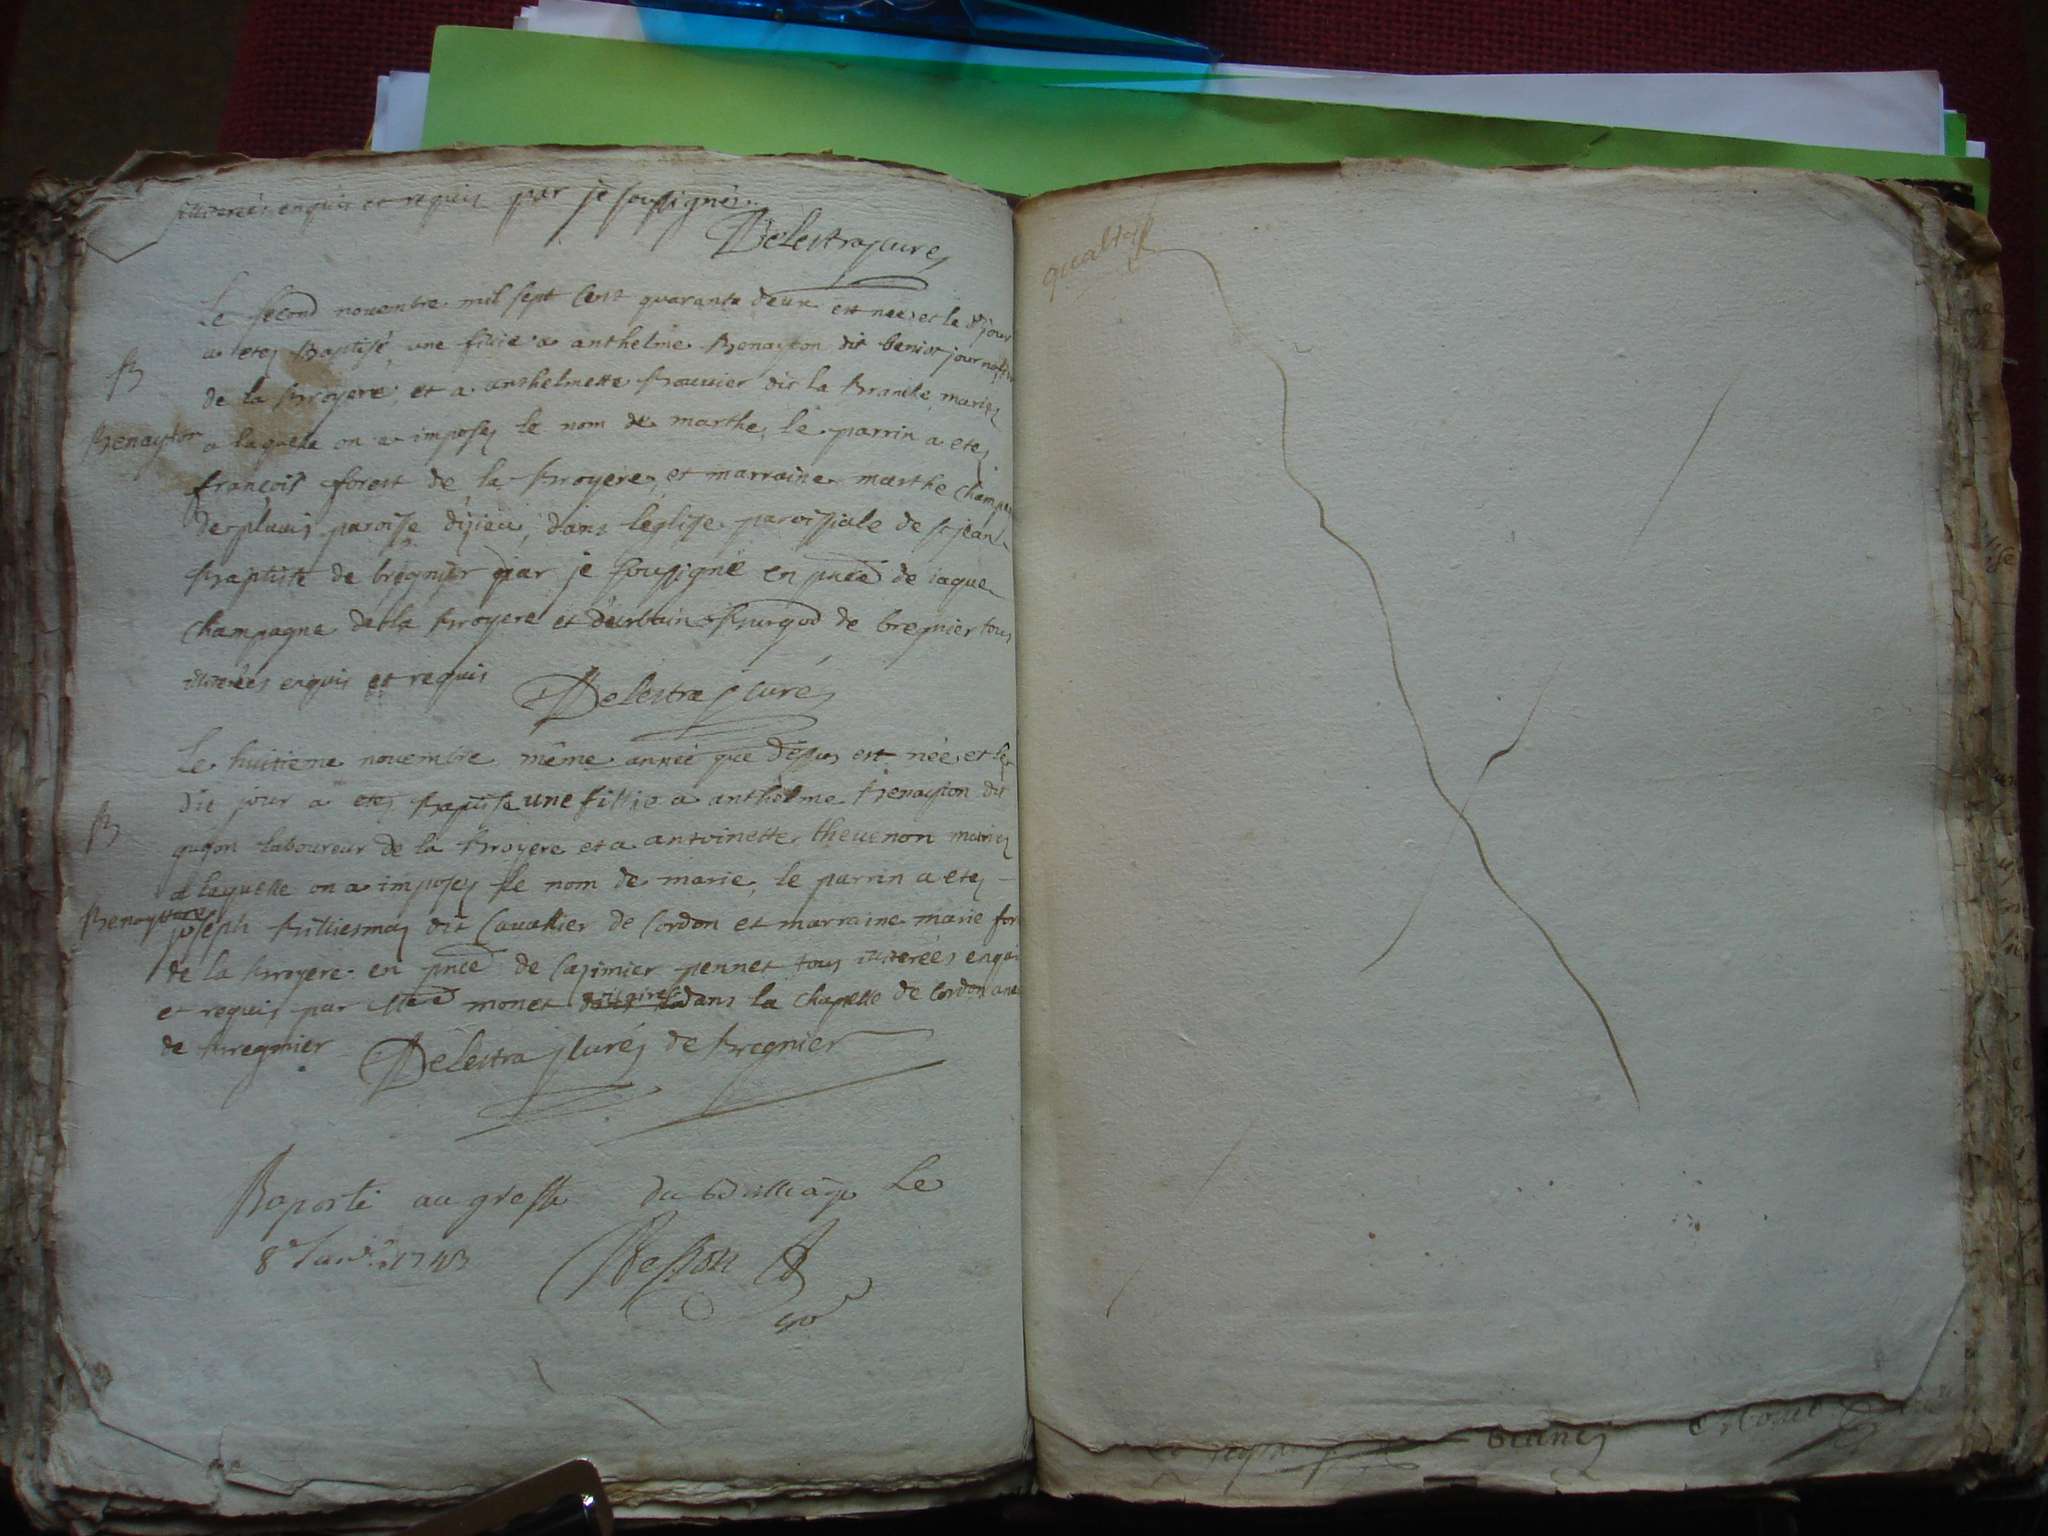 illiterés enquis et requis par je soussigné
Delestra curé
Le second novembre mil sept cent quarante deux est née et le d jour
a etes Baptisé une fillie a anthelme Benayton dit beniot journalier
B
de la Broyere et a anthelmette Bouvier dit la Branche mariez
Benayton
a laquelle on a imposes le nom de marthe, le parrin a etes
françois forest de la Broyere, et marraine marthe champa
de pluvis paroisse dizieu, dans leglise paroissiale de st jean
Baptiste de bregnier par je soussigné en pnce de iaque
champagne de la Broyere et d'urbain Burgod de bregnier tous
illiterés enquis et requis
Delestra curés
Le huitieme novembre même année que dessus est née et le
dit jour a etes Baptise une fillie a anthelme Benayton dit
B
gugon laboureur de la Broyere et a antoinette thevenon mariez
a laquelle on a imposes le nom de marie, le parrin a etes
Benayton
joseph Billiemaz dit Cavallier de Cordon et marraine marie for
de la Broyere en pnce de Casimier pennet tous illiterés enqui
et requis par monet vicaire dans la chapelle de Cordon
de Bregnier
Delestra curés de Bregnier
Raporté au greffe du Bailliage Le
8e Janvr 1743